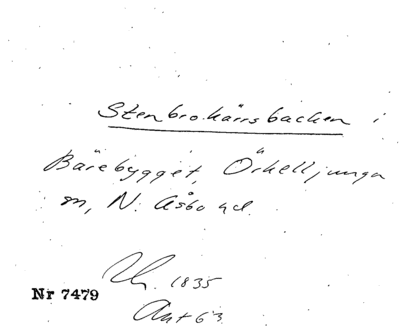 Stenbrokärrsbacken i
Bärebygget, Örkelljunga
sn, N. Åsbo hd.
1835
Nr 7479
Akt 63